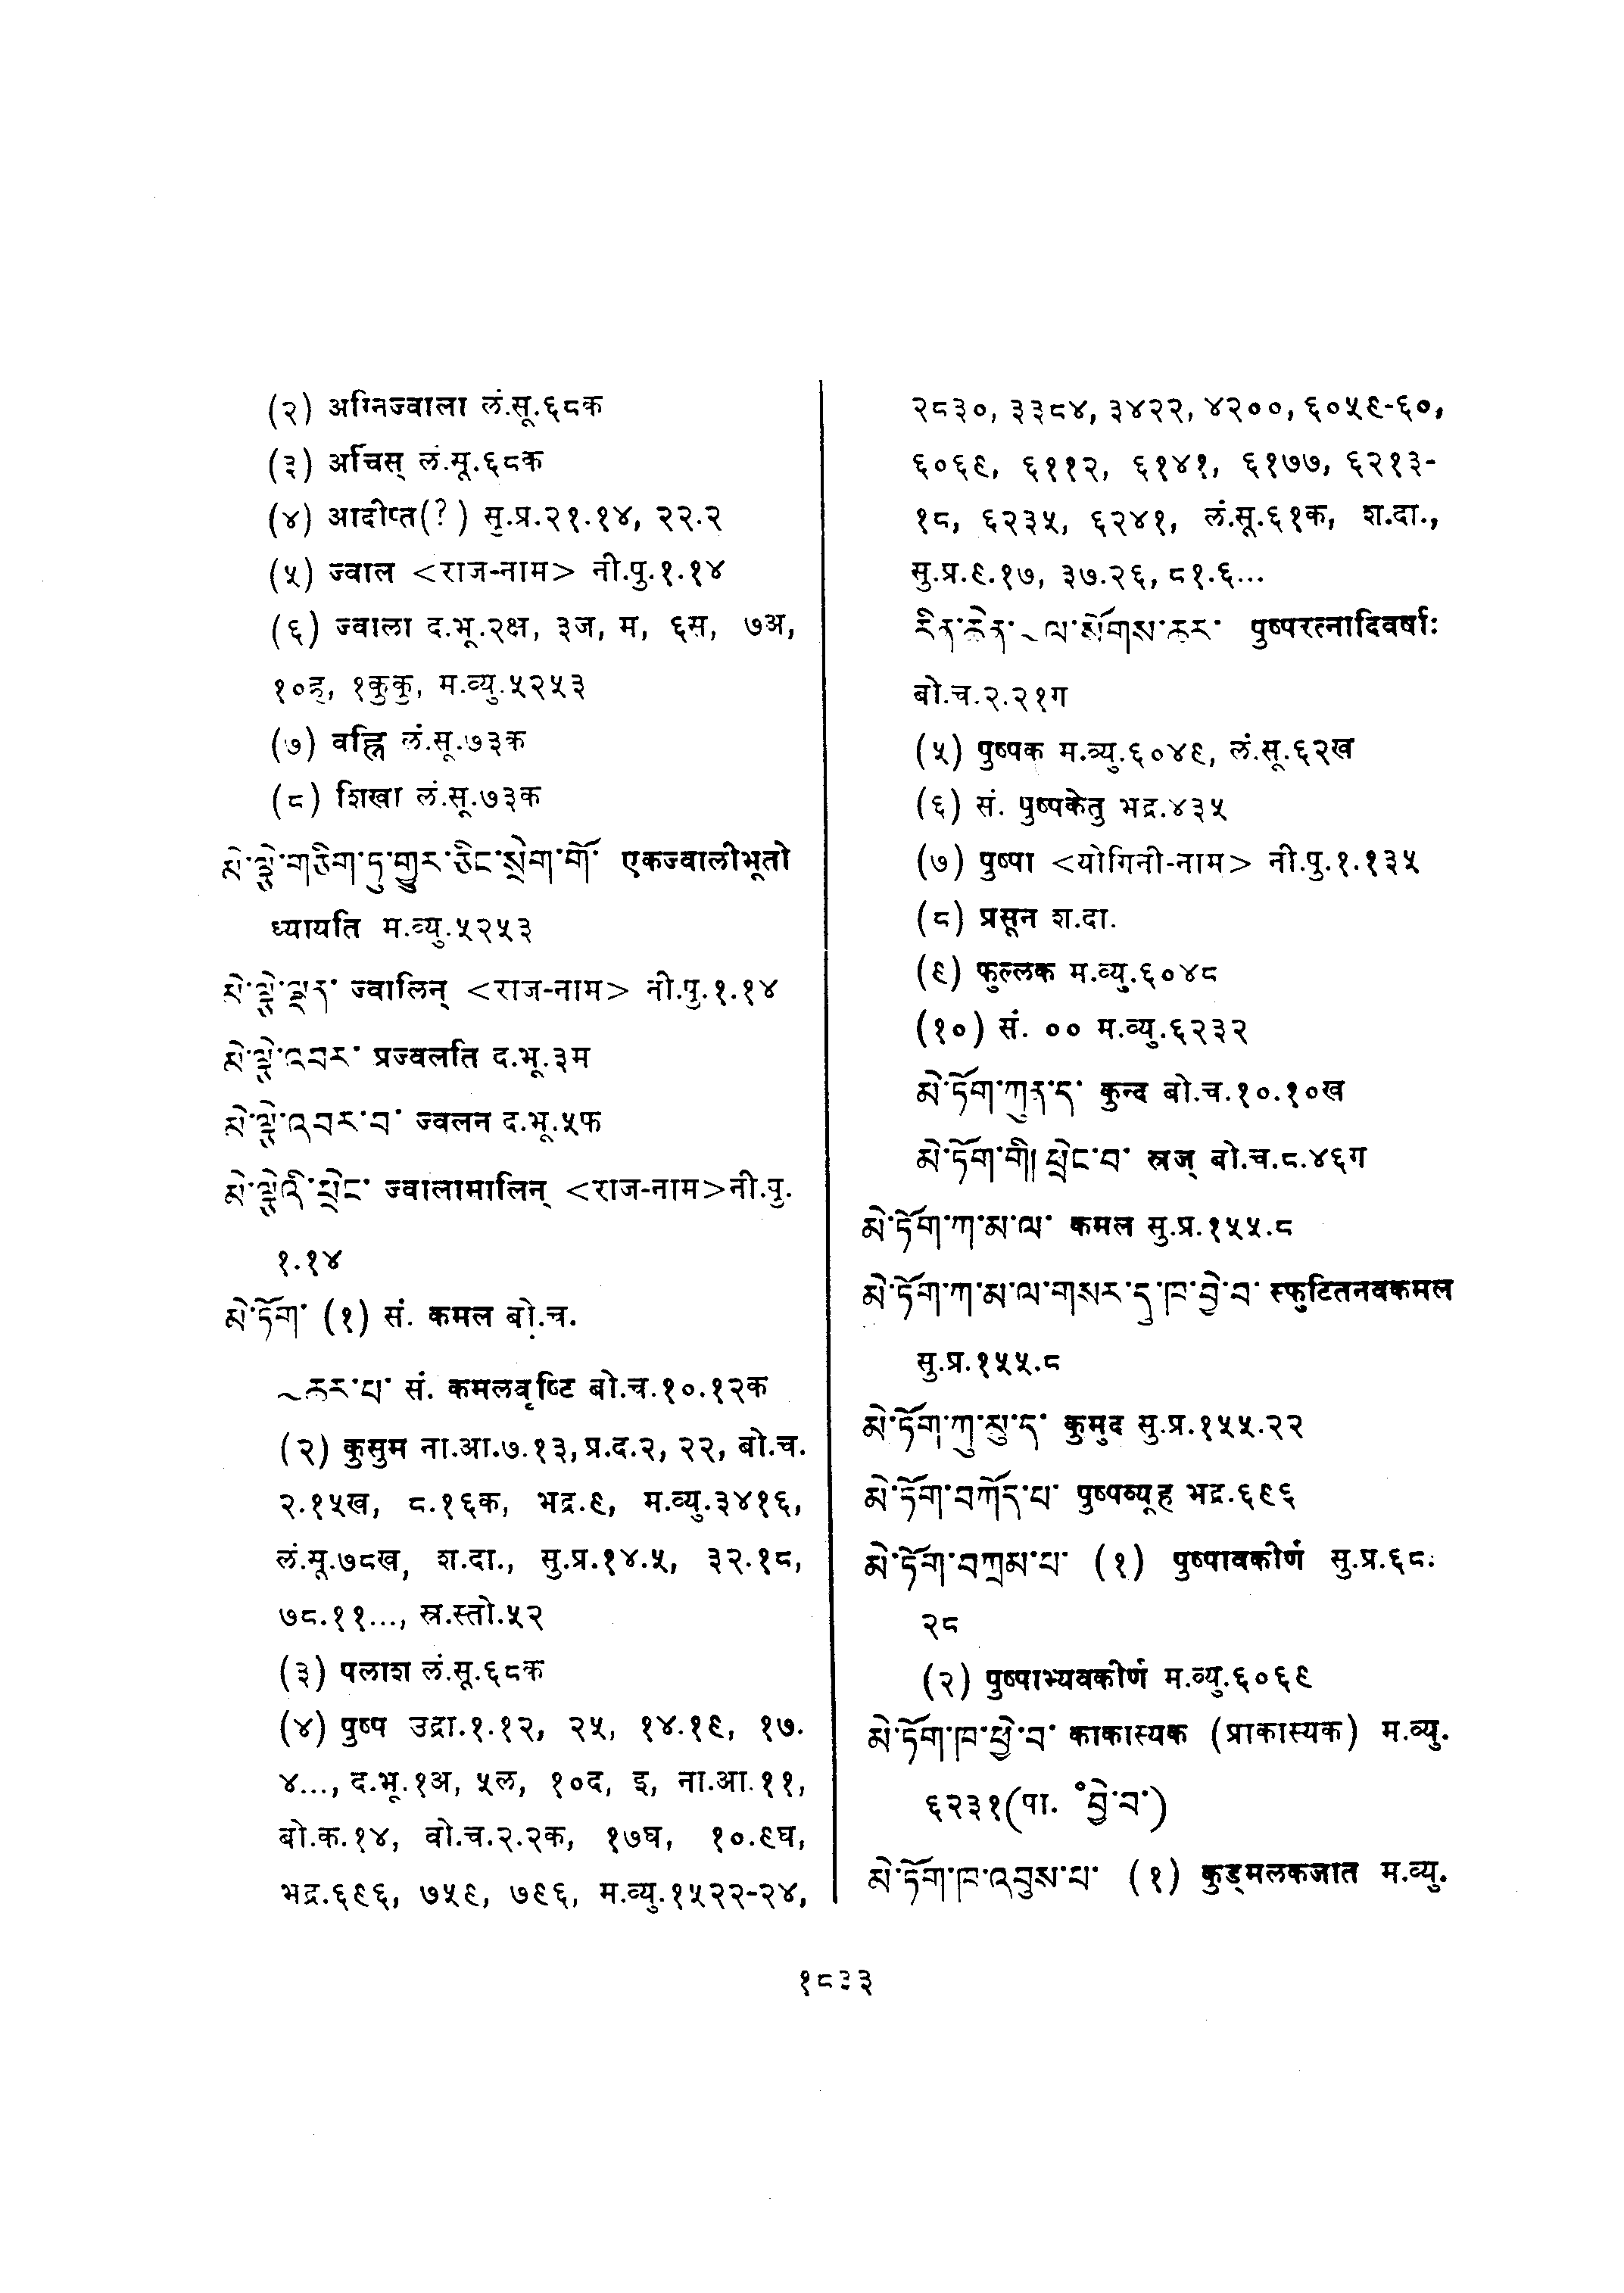 (२) अग्निज्वाला लं.सू.६८क
(३) अर्चिस् लं.सू.६८क
(४) आदीप्त(?) सु.प्र.२१.१४, २२.२
(५) ज्वाल <राज-नाम> नी.पु.१.१४
(६) ज्वाला द.भू.२क्ष, ३ज, म, ६स, ७अ,
१०ह, १कुकु, म.व्यु.५२५३
(७) वह्नि लं.सू.७३क
(८) शिखा लं.सू.७३क
མེ་ལྕེ་གཅིག་ཏུ་གྱུར་ཅིང་སྲེག་གོ་ एकज्वालीभूतो
ध्यायति म.व्यु.५२५३
མེ་ལྕེ་ལྡན་ ज्वालिन् <राज-नाम> नी.पु.१.१४
མེ་ལྕེ་འབར་ प्रज्वलति द.भू.३म
མེ་ལྕེ་འབར་བ་ ज्वलन द.भू.५फ
མེ་ལྕེའི་ཕྲེང་ ज्वालामालिन् <राज-नाम>नी.पु.
१.१४
མེ་ཏོག་ (१) सं. कमल बो.च.
~ཆར་པ་ सं. कमलवृष्टि बो.च.१०.१२क
(२) कुसुम ना.आ.७.१३, प्र.द.२, २२, बो.च.
२.१५ख, ८.१६क, भद्र.९, म.व्यु.३४१६,
लं.सू.७८ख, श.दा., सु.प्र.१४.५, ३२.१८,
७८.११..., स्र.स्तो.५२
(३) पलाश लं.सू.६८क
(४) पुष्प उद्रा.१.१२, २५, १४.१९, १७.
४..., द.भू.१अ, ५ल, १०द, इ, ना.आ.११,
बो.क.१४, बो.च.२.२क, १७घ, १०.९घ,
भद्र.६९६, ७५९, ७९६, म.व्यु.१५२२-२४,
२८३०, ३३८४, ३४२२, ४२००, ६०५९-६०,
६०६९, ६११२, ६१४१, ६१७७, ६२१३-
१८, ६२३५, ६२४१, लं.सू.६१क, श.दा.,
सु.प्र.९.१७, ३७.२६, ८१.६...
རིན་ཆེན་~ལ་སོགས་ཆར་ पुष्परत्नादिवर्षाः
बो.च.२.२१ग
(५) पुष्पक म.व्यु.६०४९, लं.सू.६२ख
(६) सं. पुष्पकेतु भद्र.४३५
(७) पुष्पा <योगिनी-नाम> नी.पु.१.१३५
(८) प्रसून श.दा.
(९) फुल्लक म.व्यु.६०४८
(१०) सं. ०० म.व्यु.६२३२
མེ་ཏོག་ཀུན་ད་ कुन्द बो.च.१०.१०ख
མེ་ཏོག་གི། ཕྲེང་བ་ स्रज् बो.च.८.४६ग
མེ་ཏོག་ཀ་མ་ལ་ कमल सु.प्र.१५५.८
མེ་ཏོག་ཀ་མ་ལ་གསར་དུ་ཁ་བྱེ་བ་ स्फुटितनवकमल
सु.प्र.१५५.८
མེ་ཏོག་ཀུ་མུ་ད་ कुमुद सु.प्र.१५५.२२
མེ་ཏོག་བཀོད་པ་ पुष्पव्यूह भद्र.६९६
མེ་ཏོག་བཀྲམ་པ་ (१) पुष्पावकीर्ण सु.प्र.६८.
२८
(२) पुष्पाभ्यवकीर्ण म.व्यु.६०६९
མེ་ཏོག་ཁ་ཕྱེ་བ་ काकास्यक (प्राकास्यक) म.व्यु.
६२३१(पा. ॰བྱེ་བ་)
མེ་ཏོག་ཁ་འབུས་པ་ (१) कुड्मलकजात म.व्यु.
१८३३